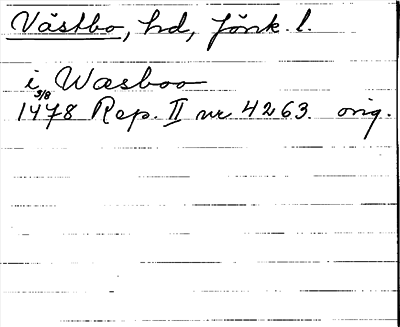 Västbo, hd, Jönk. l.
i Wæsboo
5/8
1478 Rep. II nr 4263. orig.